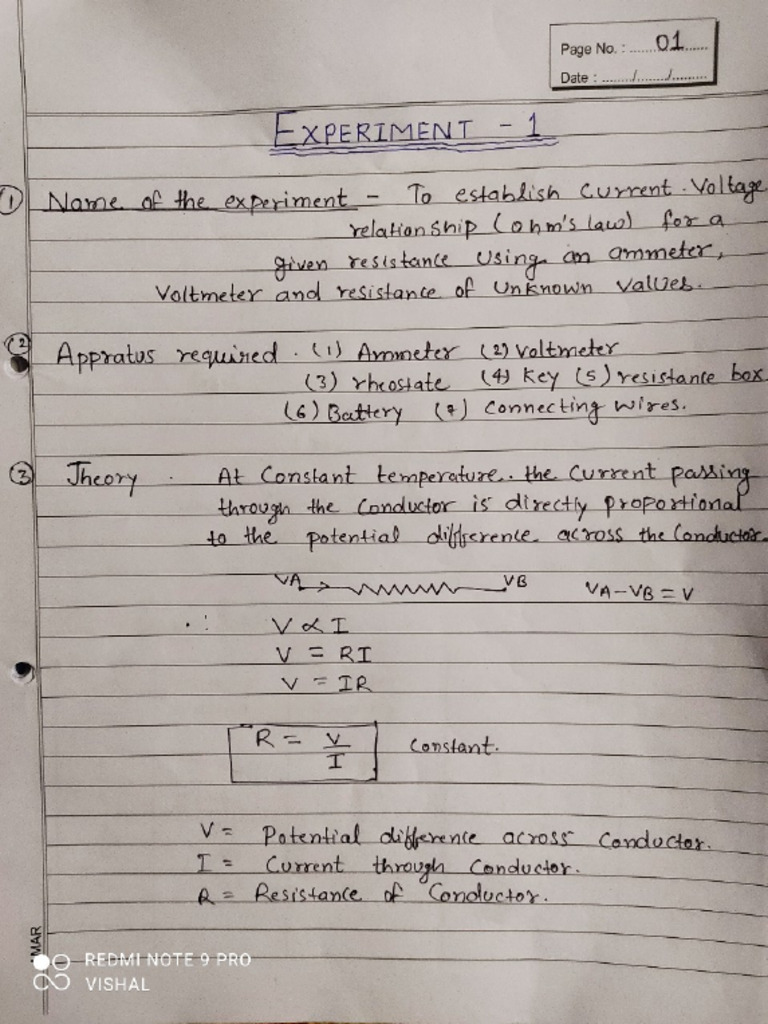 Page No. : 01
Date : ......./......./.........
EXPERIMENT - 1
(1) Name of the experiment - To establish Current. Voltage
relationship (ohm's law) for a
given resistance using an ammeter,
Voltmeter and resistance of Unknown values.
(2) Appratus required. (1) Ammeter (2) Voltmeter
(3) rheostate (4) Key (5) resistance box
(6) Battery (7) Connecting Wires.
(3) Theory . At Constant temperature. the Current passing
through the Conductor is directly proportional
to the potential difference across the Conductor.
VA VB VA-VB = V
∴ V ∝ I
V = RI
V = IR
R = V/I Constant.
V = Potential difference across Conductor.
I = Current through Conductor.
R = Resistance of Conductor.
MAR
REDMI NOTE 9 PRO
VISHAL